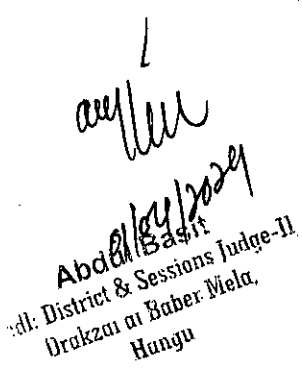 Abdul Basit
:dl: District & Sessions Judge-II,
Orakzai at Baber Mela,
Hangu